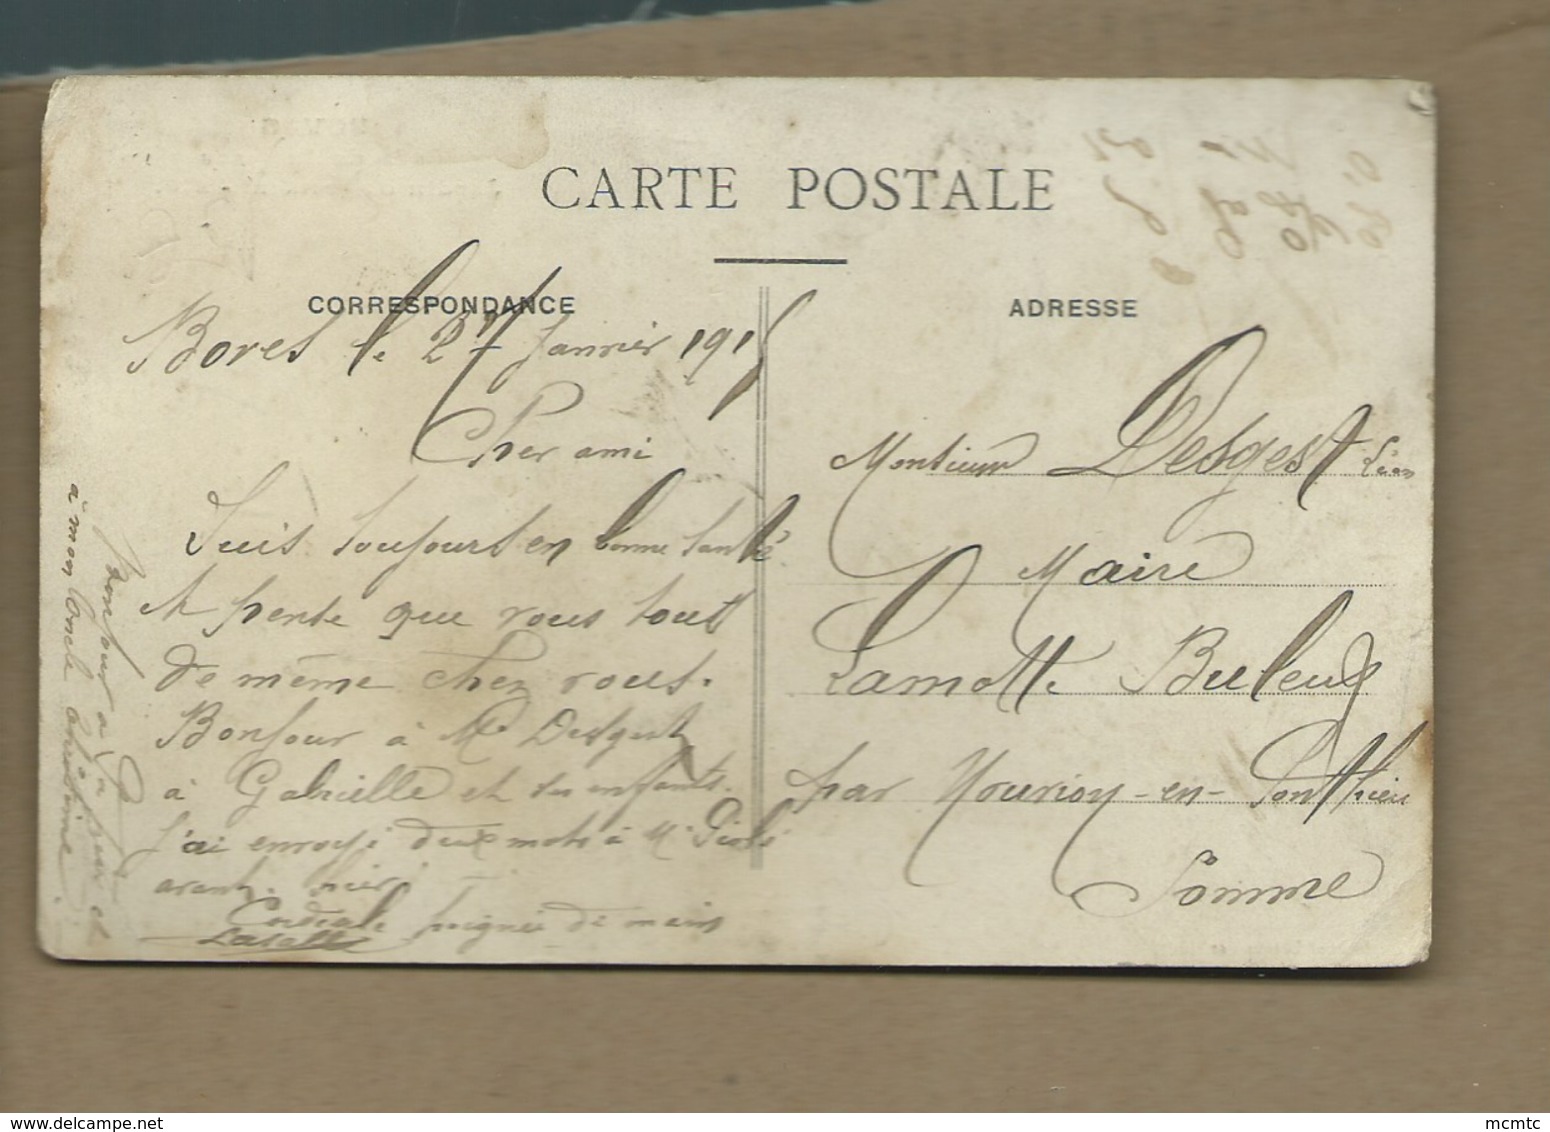 CARTE POSTALE
CORRESPONDANCE
ADRESSE
Boves le 27 Janvier 1915
Cher ami
Suis toujours en bonne santé
et pense que vous tout
de même chez vous.
Bonjour à Me Desgest
à Gabrielle et les enfants.
J'ai envoyé deux mots à Mr
avant hier
Cordiale poignée de main
Lasalle
Bonjour à et
à mon Oncle Antoine.
Monsieur Desgest Léon
Maire
Lamotte Buleux
par Nouvion-en-Ponthieu
Somme
mcmtc